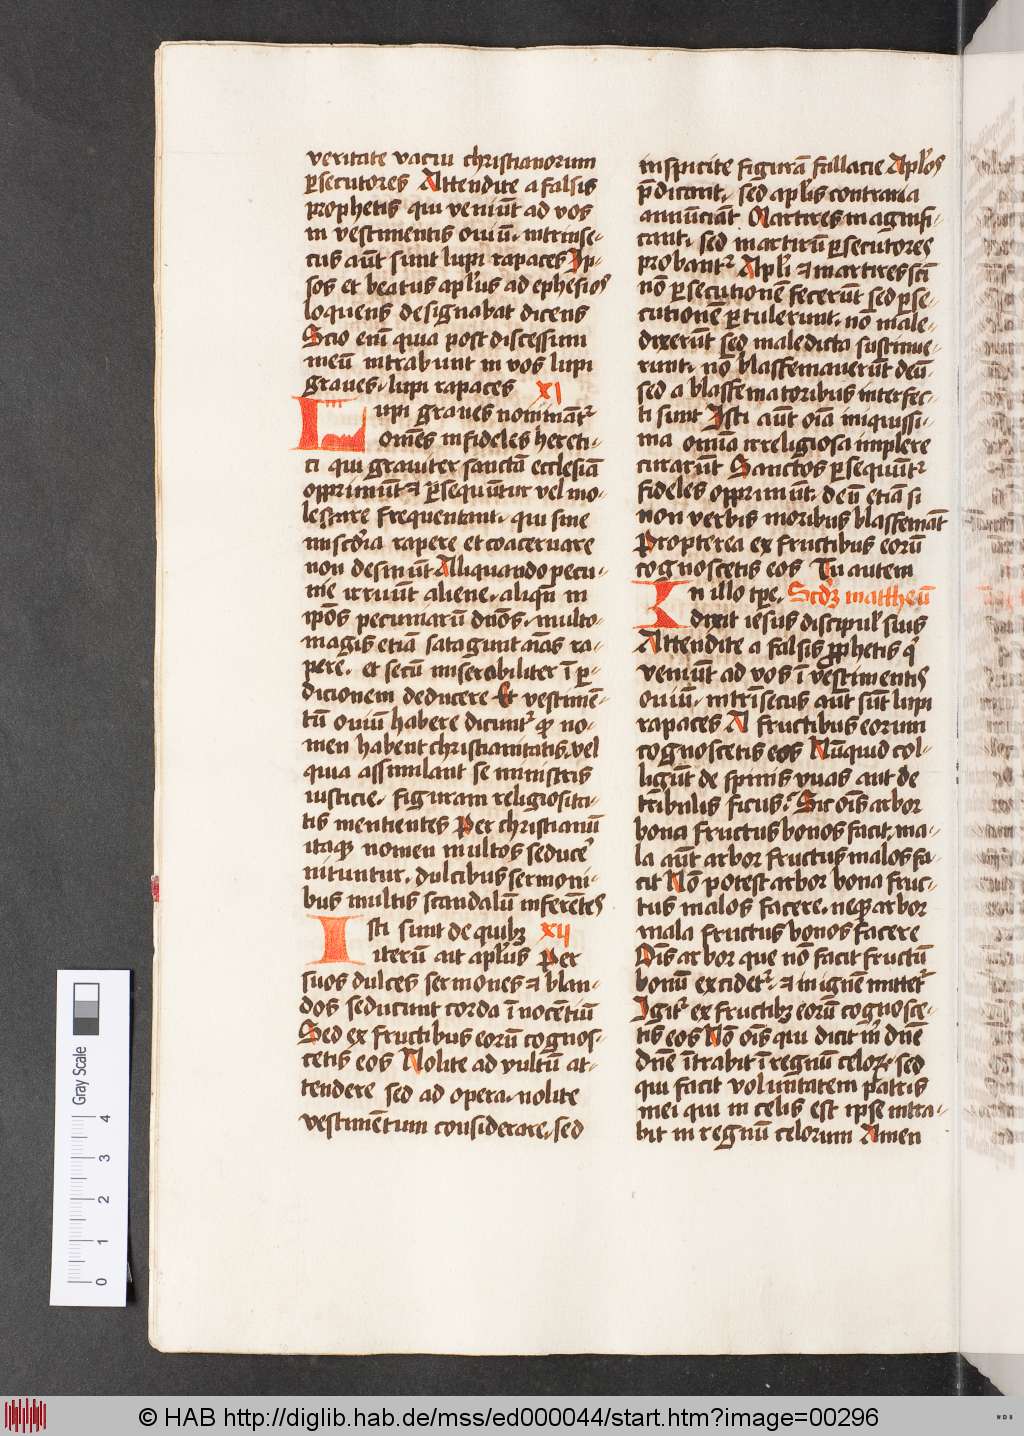 veritate vacui christianorum
ꝑsecutores Attendite a falsis
prophetis qui veniūt ad vos
in vestimentis ouiū. intrinse-
cus aūt sunt lupi rapaces Ip-
sos et beatus apl'us ad ephesios
loquens designabat dicens
Scio eni quia post discessum
meū intrabunt in vos lupi
graues. lupi rapaces XI
Lupi graues nominātᷣ
omēs infideles hereti-
ci qui grauiter sanctā ecclesiā
opprimūt ⁊ ꝑsequūtur vel mo-
lestare frequentant. qui sine
miscd'ia rapere et coaceruare
non desinūt Aliquando pecu-
nie irruūt aliene. aliqn̄ in
ip̄os pecuniarū dn̄os. multo-
magis etiā satagunt aīas ra-
pere. et secū miserabiliter ī ꝑ-
dicionem deducere Et vestimē-
tū ouiū habere dicuntᷣ qꝫ no-
men habent christianitatis. vel
quia assimilant se ministris
iusticie. figuram religiosita-
tis mentientes Per christianū
itaqꝫ nomen multos seduce'
nituntur. dulcibus sermoni-
bus multis scandalū inferētes
Isti sunt de quibꝫ XII
iterū ait apl'us Per
suos dulces sermones ⁊ blan-
dos seducunt corda īnocētiū
Sed ex fructibus eorū cognos-
cetis eos Nolite ad vultū at-
tendere sed ad opera. nolite
vestimētum considerare. sed
inspicite figurā fallacie Apl'os
p̄dicant. sed apl'is contraria
annūciāt Martires magnifi-
cant. sed martirū ꝑsecutores
probantᷣ Apl'i ⁊ martires sc̄i
nō ꝑsecutionē fecerūt sed ꝑse-
cutionē ꝑtulerunt. nō male-
dixerūt sed maledicta sustinue-
runt. nō blasfemauerūt deū
sed a blasfematoribus interfec-
ti sunt Isti aūt oīa iniquissi-
ma omīa irreligiosa implere
curarūt Sanctos ꝑsequūtᷣ
fideles opprimūt. deū etiā si
non verbis moribus blasfemāt
Propterea ex fructibus eorū
cognoscetis eos Tu autem
In illo tp̄e. Scd'ꝫ mattheū
dixit iesus discipul' suis
Attendite a falsis ꝓphetis q'
veniūt ad vos ī vestimentis
ouiū. intrīsecus aūt sūt lupi
rapaces A fructibus eorum
cognoscetis eos Nūquid col-
ligūt de spinis vuas aut de
tribulis ficus? Sic oīs arbor
bona fructus bonos facit. ma-
la aūt arbor fructus malos fa-
cit Nō potest arbor bona fruc-
tus malos facere. neqꝫ arbor
mala fructus bonos facere
Oīs arbor que nō facit fructū
bonū excidetᷣ. ⁊ in ignē mittetᷣ
Igitᷣ ex fructibꝫ eorū cognosce-
tis eos Nō oīs qui dicit m' dn̄e
dn̄e ītrabit ī regnū celoꝝ. sed
qui facit voluntatem patris
mei qui in celis est ipse intra-
bit in regnū celorum Amen
Gray Scale
0 1 2 3 4
© HAB http://diglib.hab.de/mss/ed000044/start.htm?image=00296